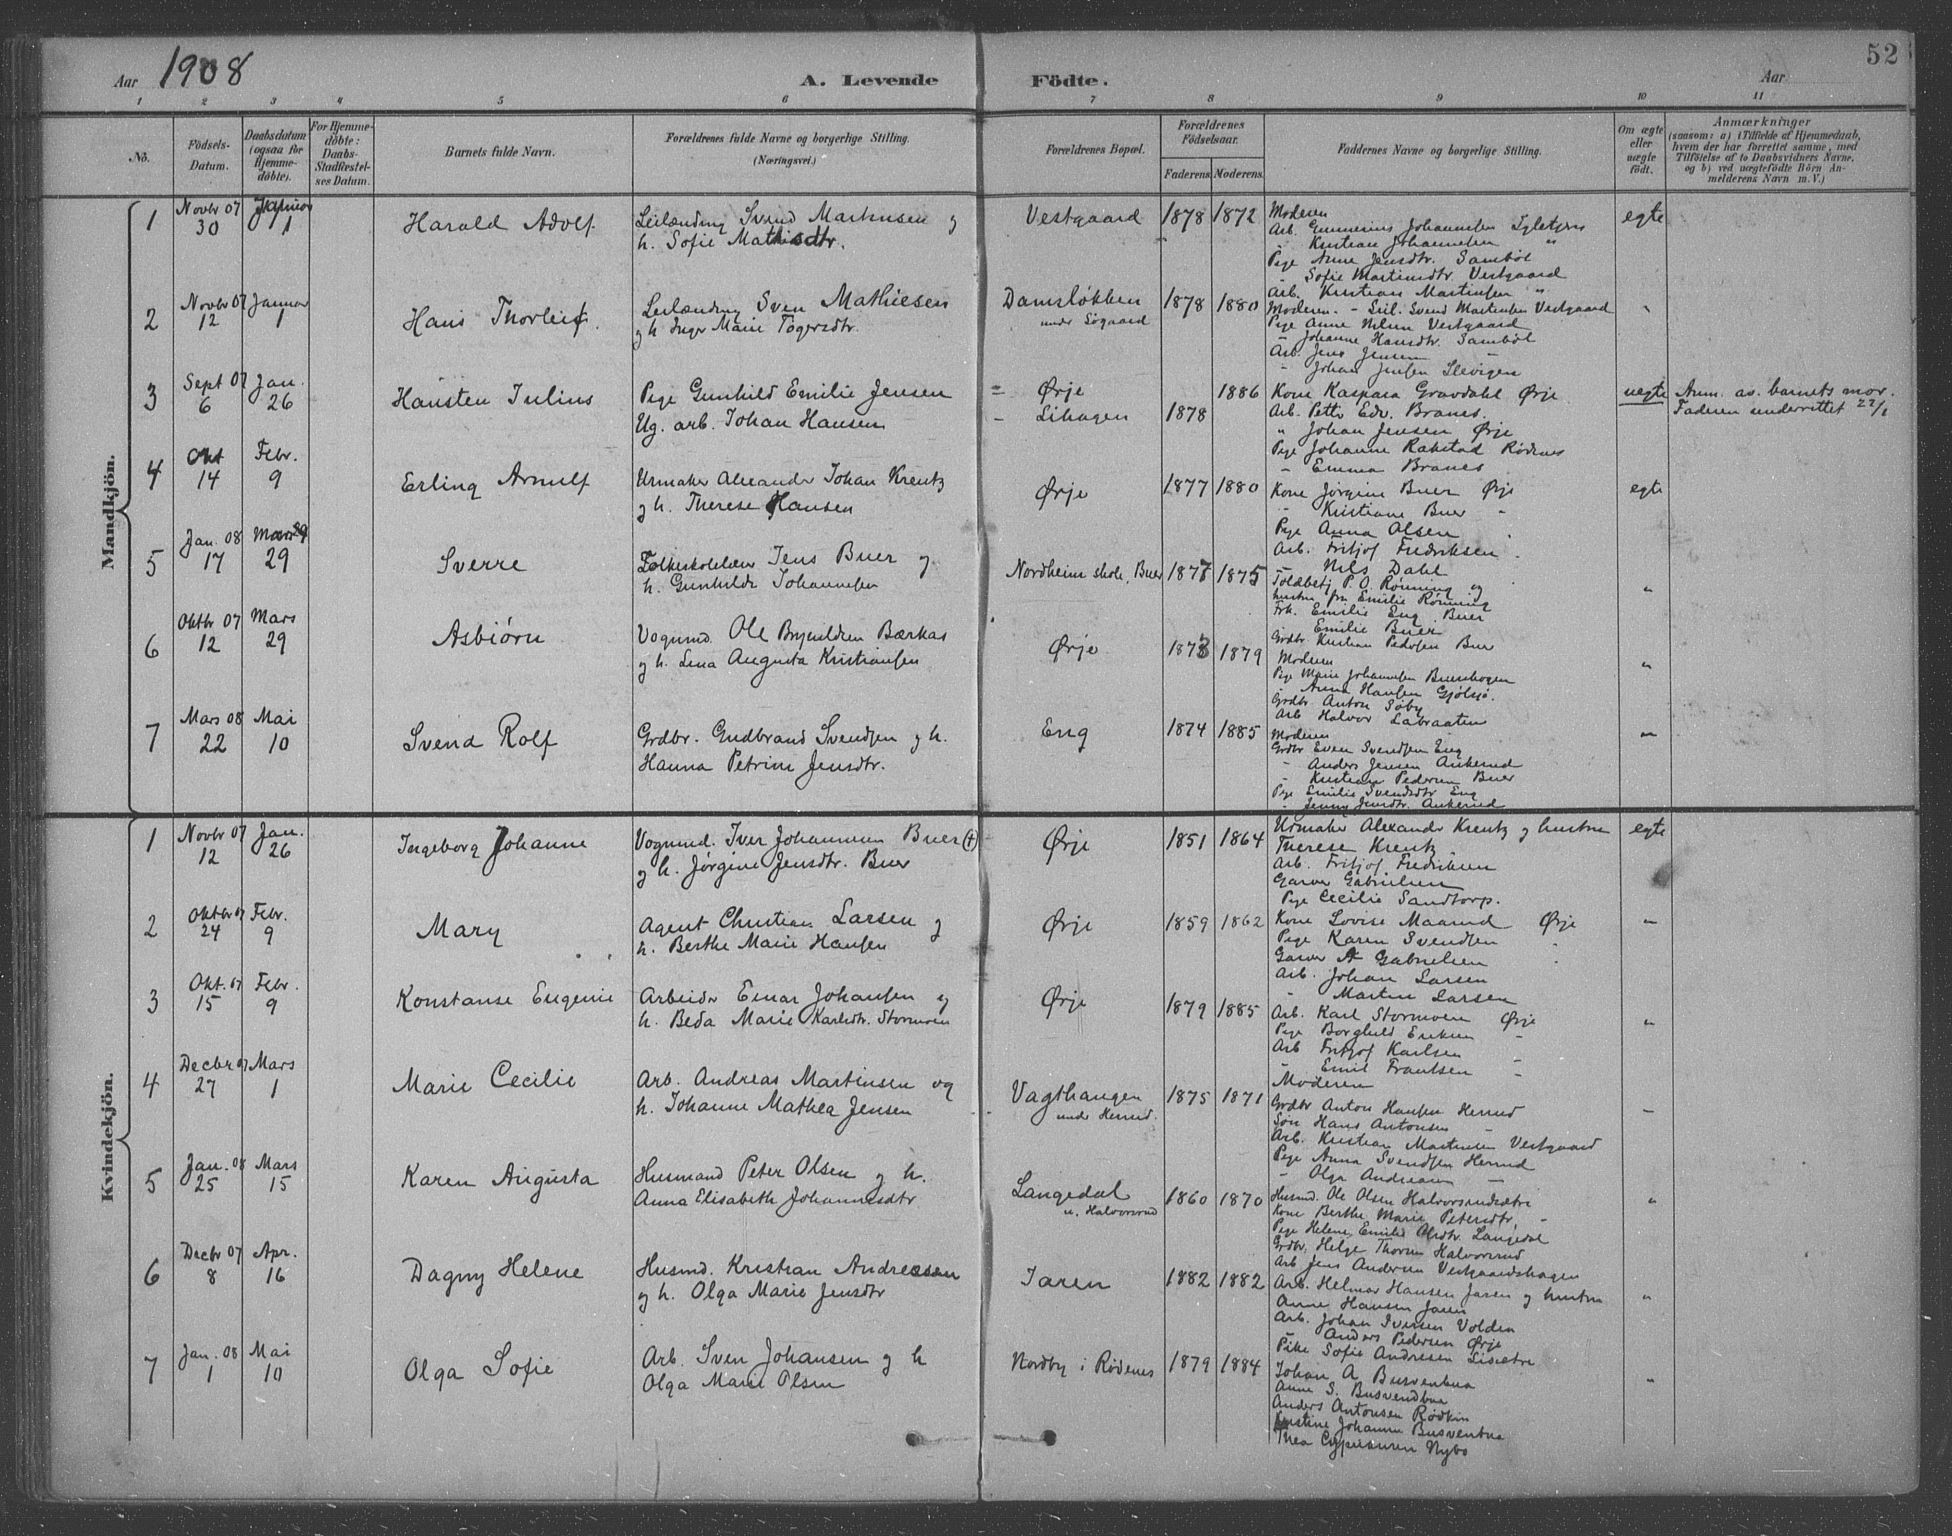 Aar 1908 A. Levende Födte. Aar 52
1 2 3 4 5 6 7 8 9 10 11
No. Födsels-Datum. Daabsdatum (ogsaa for Hjemme-döbte). For Hjemme-döbte: Daabs-Stadfæstel-ses Datum. Barnets fulde Navn. Forældrenes fulde Navne og borgerlige Stilling. (Næringsvei.) Forældrenes Bopæl. Forældrenes Födselsaar. Faderens. Moderens. Faddernes Navne og borgerlige Stilling. Om ægte eller uægte födt. Anmærkninger (saasom: a) i Tilfælde af Hjemmedaab, hvem der har forrettet samme, med Tilföielse af to Daabsvidners Navne, og b) ved uægtefödte Börn An-melderens Navn m. V.)
Mandkjön.
1 Novbr 07 30 Januar 1 Harald Adolf Leilænding Svend Martinsen og
h. Sofie Mathisdtr. Vestgaard 1878 1872 Moderen egte
Arb. Gunnerius Johannesen
" Kristian Johannesen "
Pige Anne Jensdtr. Sambøl
- Sofie Martinsdtr Vestgaard
Arb. Kristian Martinsen "
2 Novbr 07 12 Januar 1 Hans Thorleif. Leilænding Sven Mathiesen
og h. Inger Marie Tøgersdtr. Damsløkken
under Søgaard 1878 1880 Moderen. - Leil. Svend Martinsen Vestgaard "
Pige Anne Nilsen Vestgaard
- Johanne Hansdtr. Sambøl
Arb. Jens Jensen "
- Johan Jensen Slevigen
3 Sept 07 6 Jan. 26 Hansten Julius Pige Gunhild Emilie Jensen = Ørje 1886 Kone Kaspara Gravdahl Ørje uegte Anm. av. barnets mor.
Ug. arb. Johan Hansen - Lihagen 1878 Arb. Petter Edv. Branes. Faderen underrettet 22/1
" Johan Jensen Ørje
Pige Johanne Rakstad Rødenes
- Emma Branes
4 Okt 14 Febr. 9 Erling Arnulf Urmaker Alexander Johan Krentz
og h. Therese Hansen Ørje 1877 1880 Kone Jørgine Buer Ørje egte
- Kristiane Buer "
Pige Anna Olsen "
Arb. Fritjof Fredriksen "
- Nils Dahl
5 Jan. 08 17 Mars 29 Sverre Folkeskolelærer Jens Buer og
h. Gunhilde Johannesen Nordheim skole, Buer 1877 1875 Toldbetj P. O. Rønning og "
hustru fru Emilie Rønning
Frk. Emilie Eng Buer
Emilie Buer
Grdbr. Kristian Pedersen Buer
6 Oktbr 07 12 Mars 29 Asbiørn Vognmd. Ole Brynildsen Bærkas
og h. Lina Augusta Kristiansen Ørje 1873 1879 Moderen "
Pige Marie Johannesen Buershagen
- Anna Hansen Gjølsjø.
Grdbr Anton Søby
Arb Halvor Labraaten
7 Mars 08 22 Mai 10 Svend Rolf Grdbr. Gudbrand Svendsen og h.
Hanna Petrine Jensdtr. Eng 1874 1885 Moderen "
Grdbr Even Svendsen Eng
- Anders Jensen Ankerud
- Kristian Pedersen Buer
Pige Emilie Svendsdtr Eng
- Jenny Jensdtr. Ankerud
Kvindekjön.
1 Novbr 07 12 Jan. 26 Ingeborg Johanne Vogmnd. Iver Johannesen Buer (+)
og h. Jørgine Jensdtr. Buer Ørje 1851 1864 Urmaker Alexander Krentz og hustru egte
Therese Krentz
Arb. Fritjof Fredriksen
Garver Gabrielsen
Pige Cecilie Sandtorp.
2 Oktbr 07 24 Febr. 9 Mary Agent Christian Larsen og
h. Berthe Marie Hansen Ørje 1859 1862 Kone Lovise Maarud Ørje "
Pige Karen Svendsen "
Garver A Gabrielsen "
Arb. Johan Larsen
- Martin Larsen
3 Okt. 07 15 Febr. 9 Konstanse Eugenie Arbeider Einar Johansen og
h. Beda Marie Karlsdtr. Stormoen Ørje 1879 1885 Arb. Karl Stormoen Ørje "
Pige Borghild Eriksen "
Arb Fritjof Karlsen "
- Emil Frantsen "
Moderen
4 Decbr 07 27 Mars 1 Marie Cecilie Arb. Andreas Martinsen og
h. Johanne Mathea Jensen Vagthaugen
under Herrud. 1875 1871 Grdbr Anton Hansen Herrud "
Søn Hans Antonsen "
Arb. Kristian Martinsen Vestgaard
Pige Anna Svendsen Herrud
- Olga Andreasen "
5 Jan. 08 25 Mars 15 Karen Augusta Husmand Peter Olsen og h.
Anna Elisabeth Johannesdtr Langedal
u. Halvorsrud 1860 1870 Husmd. Ole Olsen Halvorsrudsætre "
Kone Berthe Marie Petersdtr. "
Pige Helene Emilie Olsdtr. Langedal
Grdbr. Helge Halvorsrud
Arb Jens Andersen Vestgaardshagen
6 Decbr 07 8 Apr. 16 Dagny Helene Husmd. Kristian Andreassen
og h. Olga Marie Jensdtr Jaren 1882 1882 Arb. Helmer Hansen Jaren og hustru "
Anne Hansen Jaren
Arb. Johan Iversen Volden
- Anders Pedersen Ørje
Pike Sofie Andresen
7 Jan. 08 1 Mai 10 Olga Sofie Arb. Sven Johansen og h
Olga Marie Olsen Nordby i Rødenes 1879 1884 Johan A Busvenbua "
Anne S. Busvendbua
Anders Antonsen Rødkin
Kristine Johanne Busvenbua
Thea Nybo